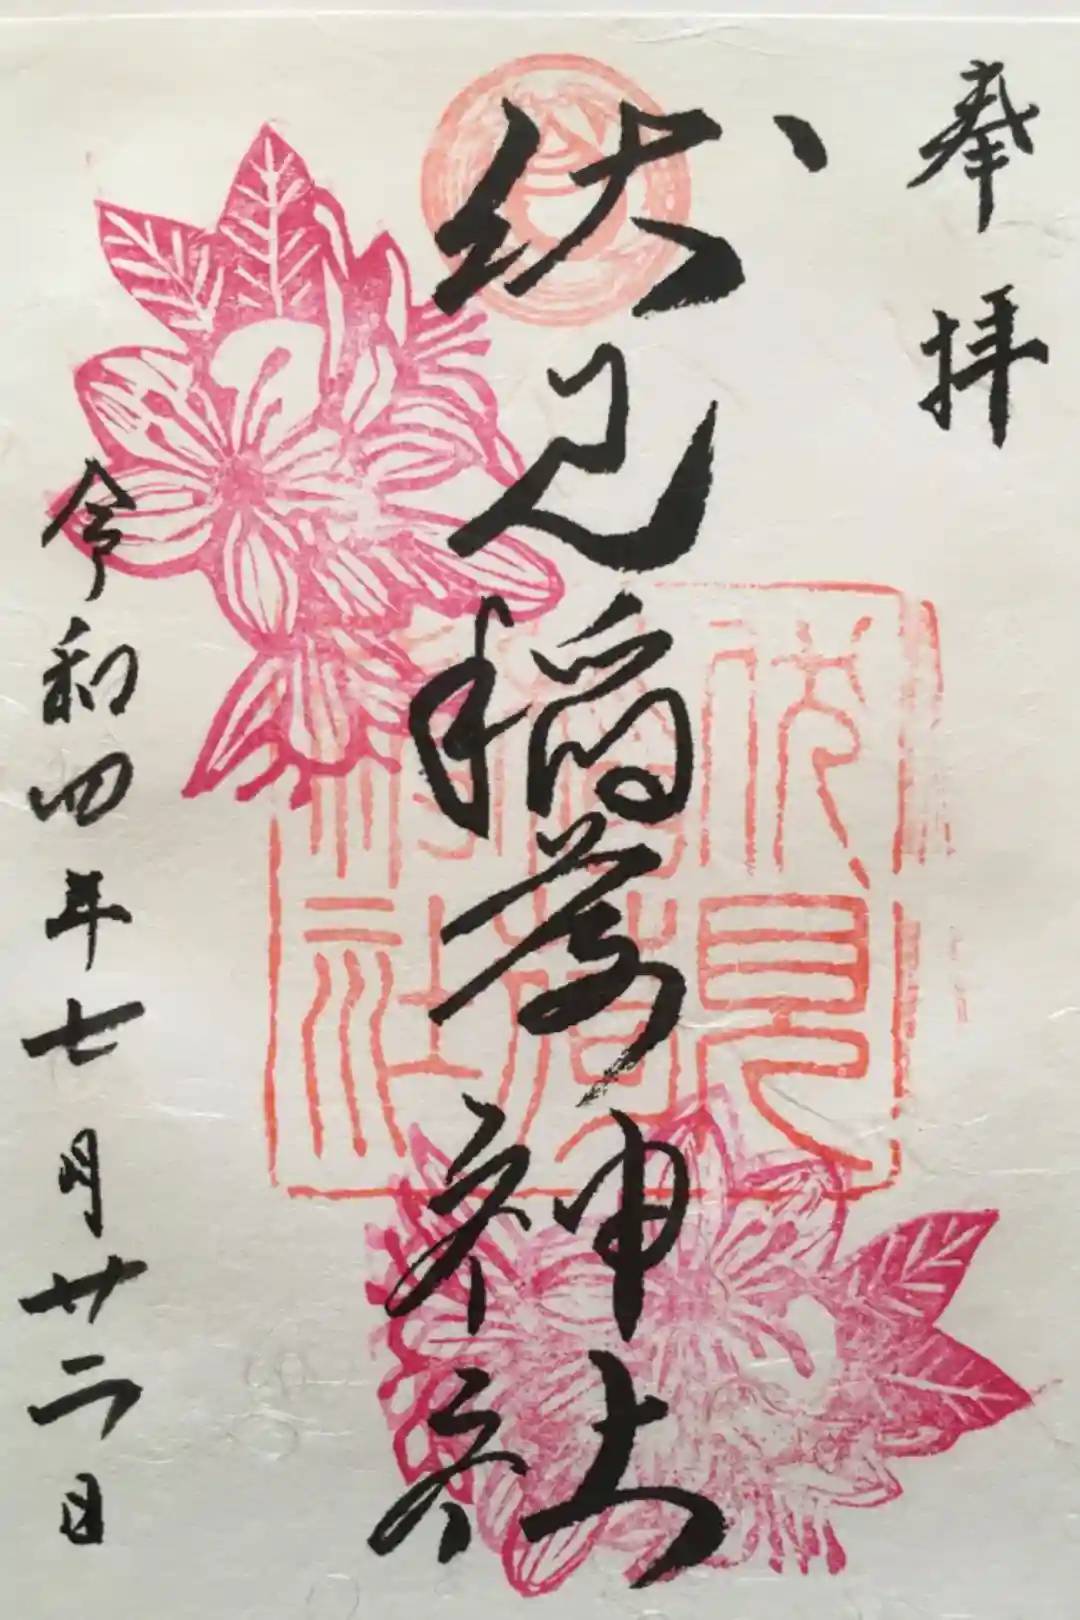 奉拝
伏見稲荷神社
伏見稲荷神社
令和四年七月廿二日